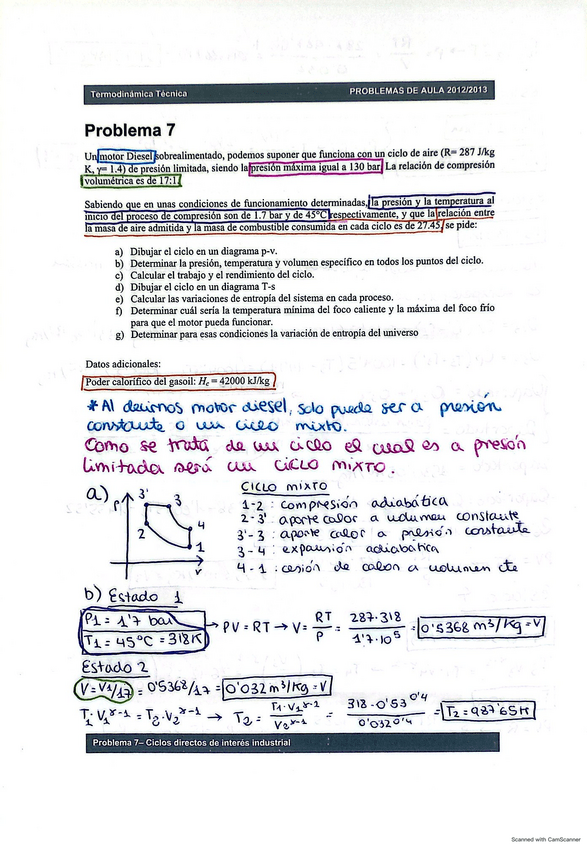 Termodinámica Técnica PROBLEMAS DE AULA 2012/2013
Problema 7
Un motor Diesel sobrealimentado, podemos suponer que funciona con un ciclo de aire (R= 287 J/kg
K, γ= 1.4) de presión limitada, siendo la presión máxima igual a 130 bar. La relación de compresión
volumétrica es de 17:1.
Sabiendo que en unas condiciones de funcionamiento determinadas, la presión y la temperatura al
inicio del proceso de compresión son de 1.7 bar y de 45ºC respectivamente, y que la relación entre
la masa de aire admitida y la masa de combustible consumida en cada ciclo es de 27.45, se pide:
a) Dibujar el ciclo en un diagrama p-v.
b) Determinar la presión, temperatura y volumen específico en todos los puntos del ciclo.
c) Calcular el trabajo y el rendimiento del ciclo.
d) Dibujar el ciclo en un diagrama T-s
e) Calcular las variaciones de entropía del sistema en cada proceso.
f) Determinar cuál sería la temperatura mínima del foco caliente y la máxima del foco frío
para que el motor pueda funcionar.
g) Determinar para esas condiciones la variación de entropía del universo
Datos adicionales:
Poder calorífico del gasoil: Hc = 42000 kJ/kg
* Al decirnos motor diesel, solo puede ser a presión
constante o un ciclo mixto.
Como se trata de un ciclo el cual es a presión
limitada será un CICLO MIXTO.
a) P 3' 3 2 4 1 v
CICLO MIXTO
1-2 : compresión adiabática
2-3' aporte calor a volumen constante
3'-3 : aporte calor a presión constante
3-4 : expansión adiabática
4-1 : cesión de calor a volumen cte
b) Estado 1
P1 = 1'7 bar
T1 = 45ºC = 318K
→ PV = RT → V = RT/P = 287·318/1'7·10⁵ = 0'5368 m³/kg = V
Estado 2
V = V1/17 = 0'5368/17 = 0'032 m³/kg = V
T1·V1^γ-1 = T2·V2^γ-1 → T2 = T1·V1^γ-1/V2^γ-1 = 318·0'53^0'4/0'032^0'4 = T2 = 987'65K
Problema 7– Ciclos directos de interés industrial
Scanned with CamScanner